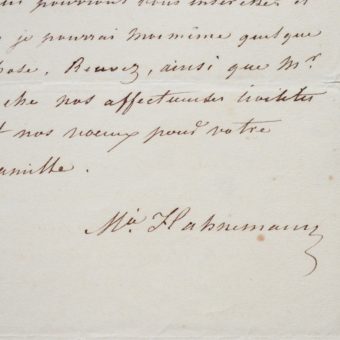 pourrions vous intéresser et
je pourrai moi même quelque
hose. Recevez, ainsi que Mr.
che nos affectueuses
t nos voeux pour votre
famille.
Ma. Hahnemann